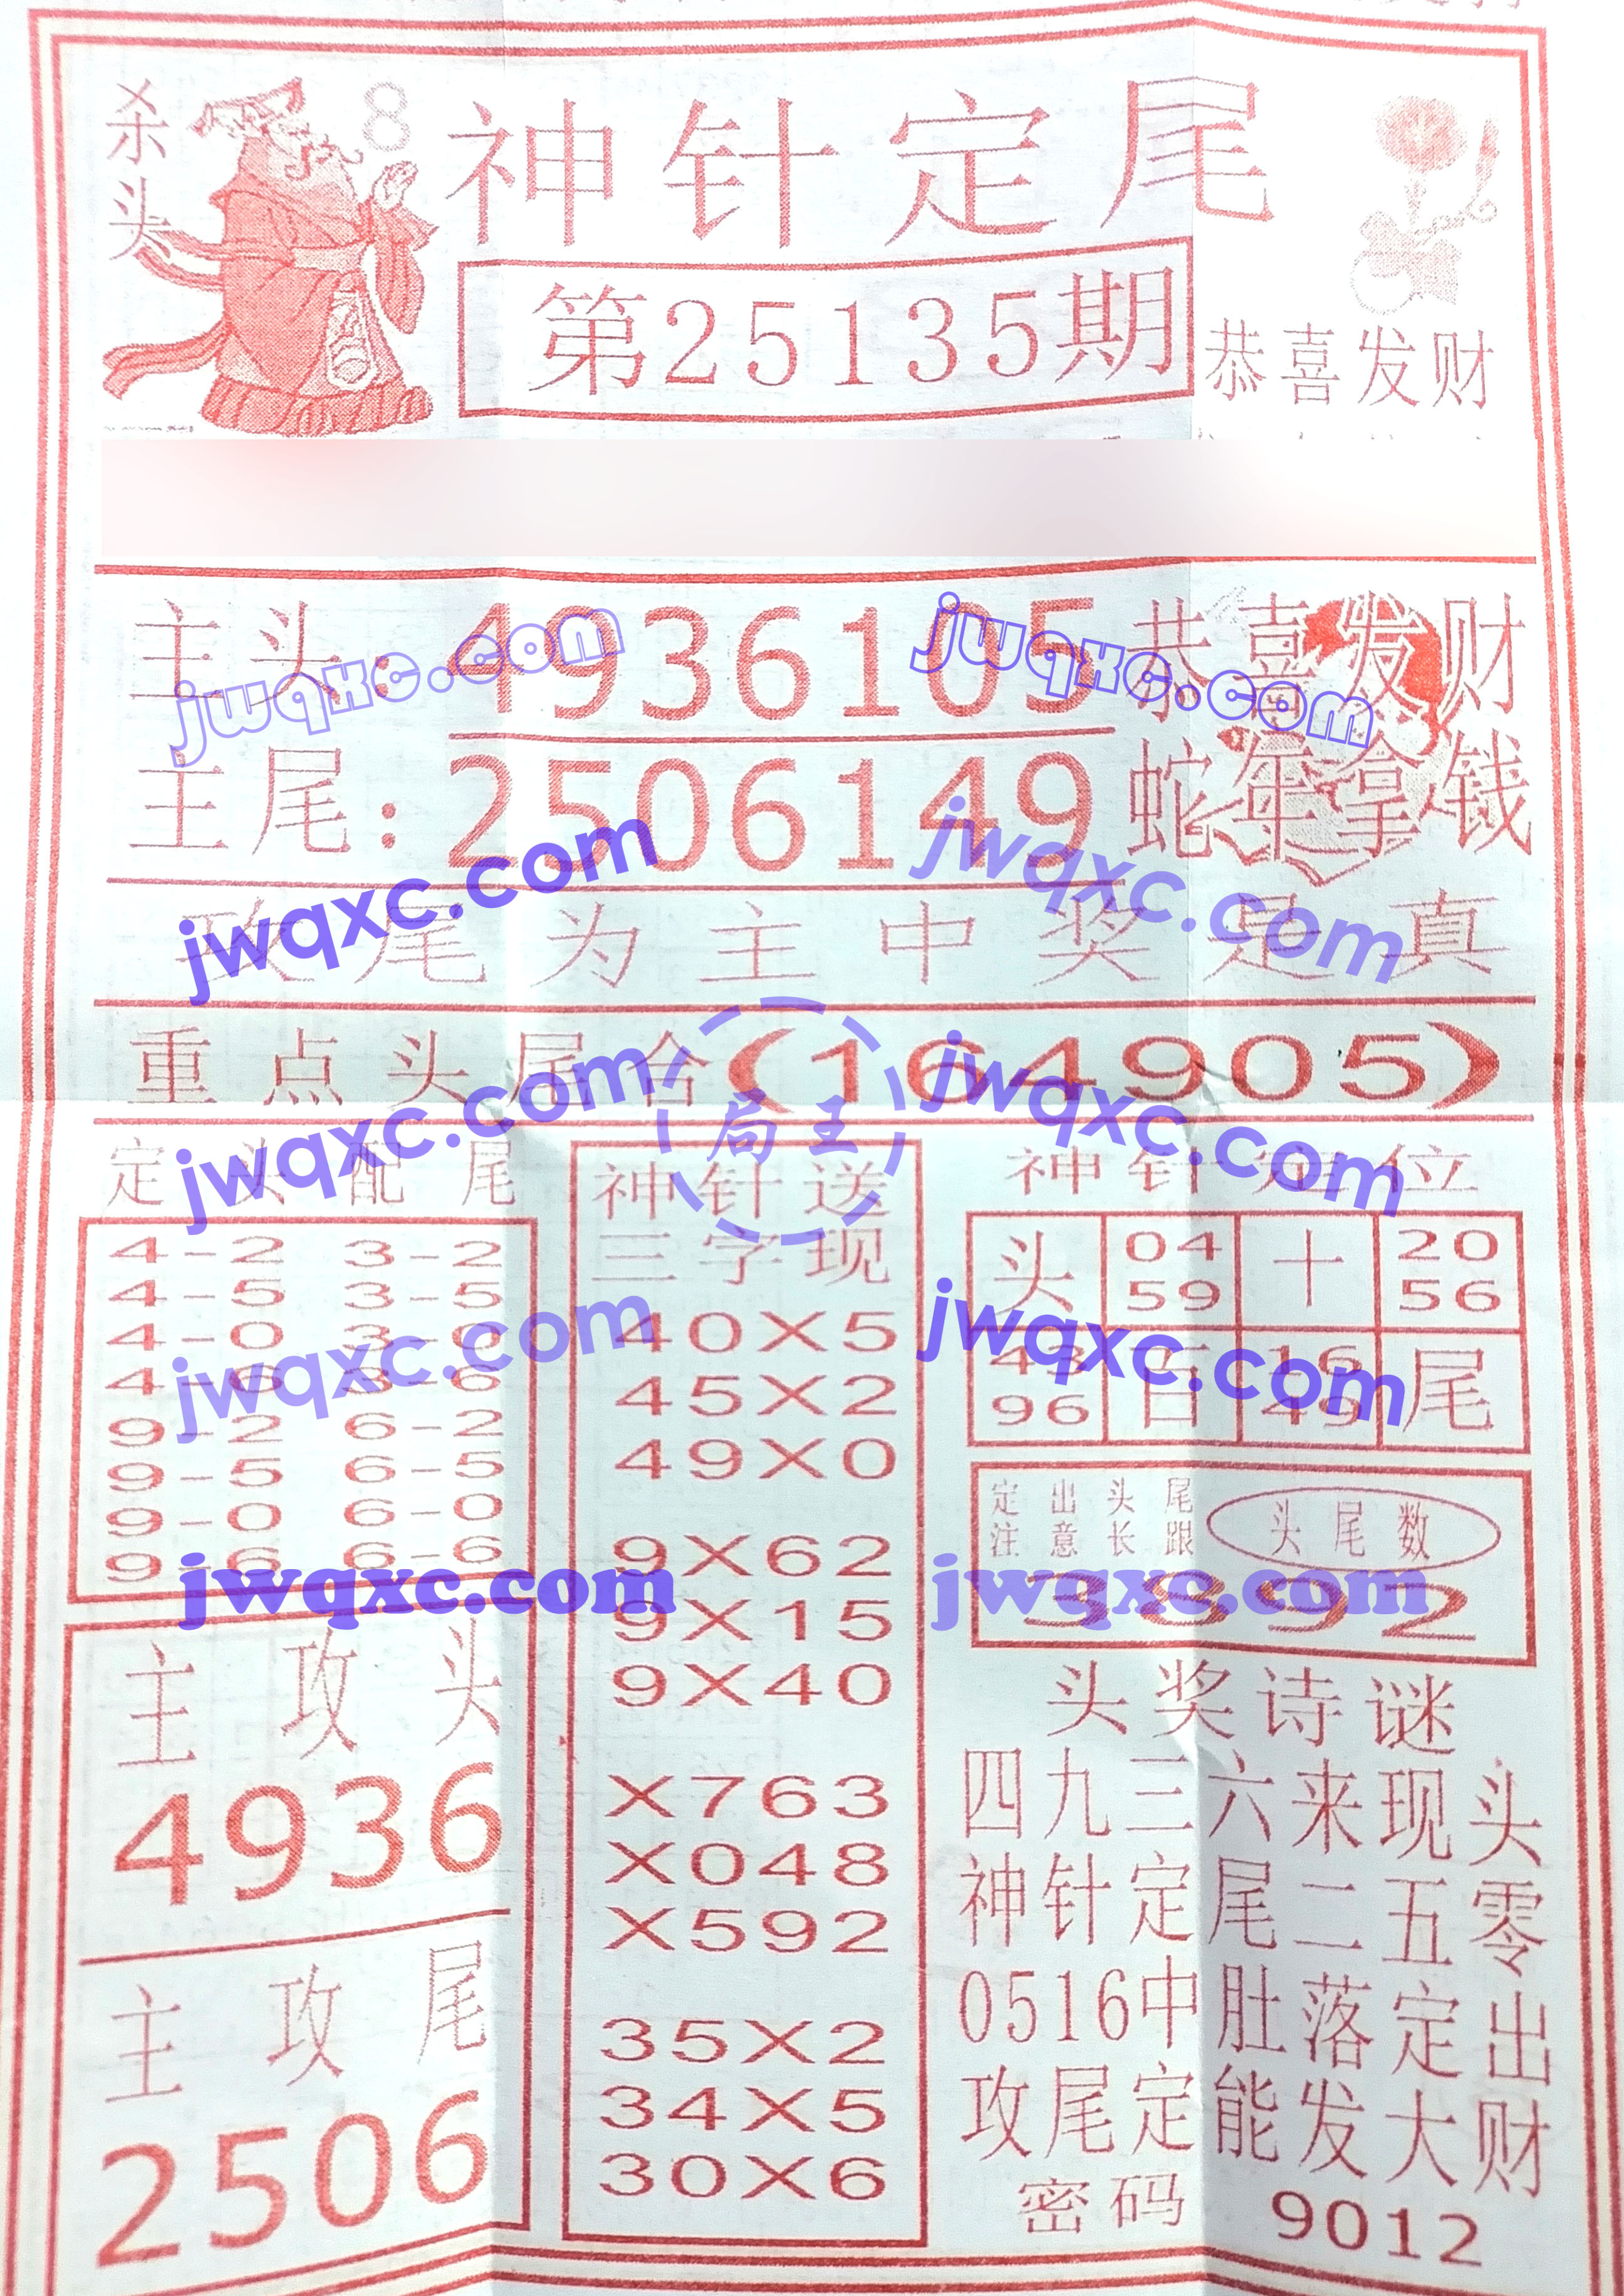 杀头
8
神针定尾
第25135期
恭喜发财
主头:4936105
恭喜发财
主尾:2506149
蛇年拿钱
攻尾为主中奖是真
重点头尾合(164905)
定头配尾
4-2 3-2
4-5 3-5
4-0 3-0
4-6 3-6
9-2 6-2
9-5 6-5
9-0 6-0
9-6 6-6
主攻头
4936
主攻尾
2506
神针送
三字现
40X5
45X2
49X0
9X62
9X15
9X40
X763
X048
X592
35X2
34X5
30X6
神针定位
头 04 十 20
59 56
43 百 16 尾
96 49
定出头尾
注意长跟
头尾数
3892
头奖诗谜
四九三六来现头
神针定尾二五零
0516中肚落定出
攻尾定能发大财
密码 9012
jwqxc.com
jwqxc.com
jwqxc.com
jwqxc.com
局王
jwqxc.com
jwqxc.com
jwqxc.com
jwqxc.com
jwqxc.com
jwqxc.com